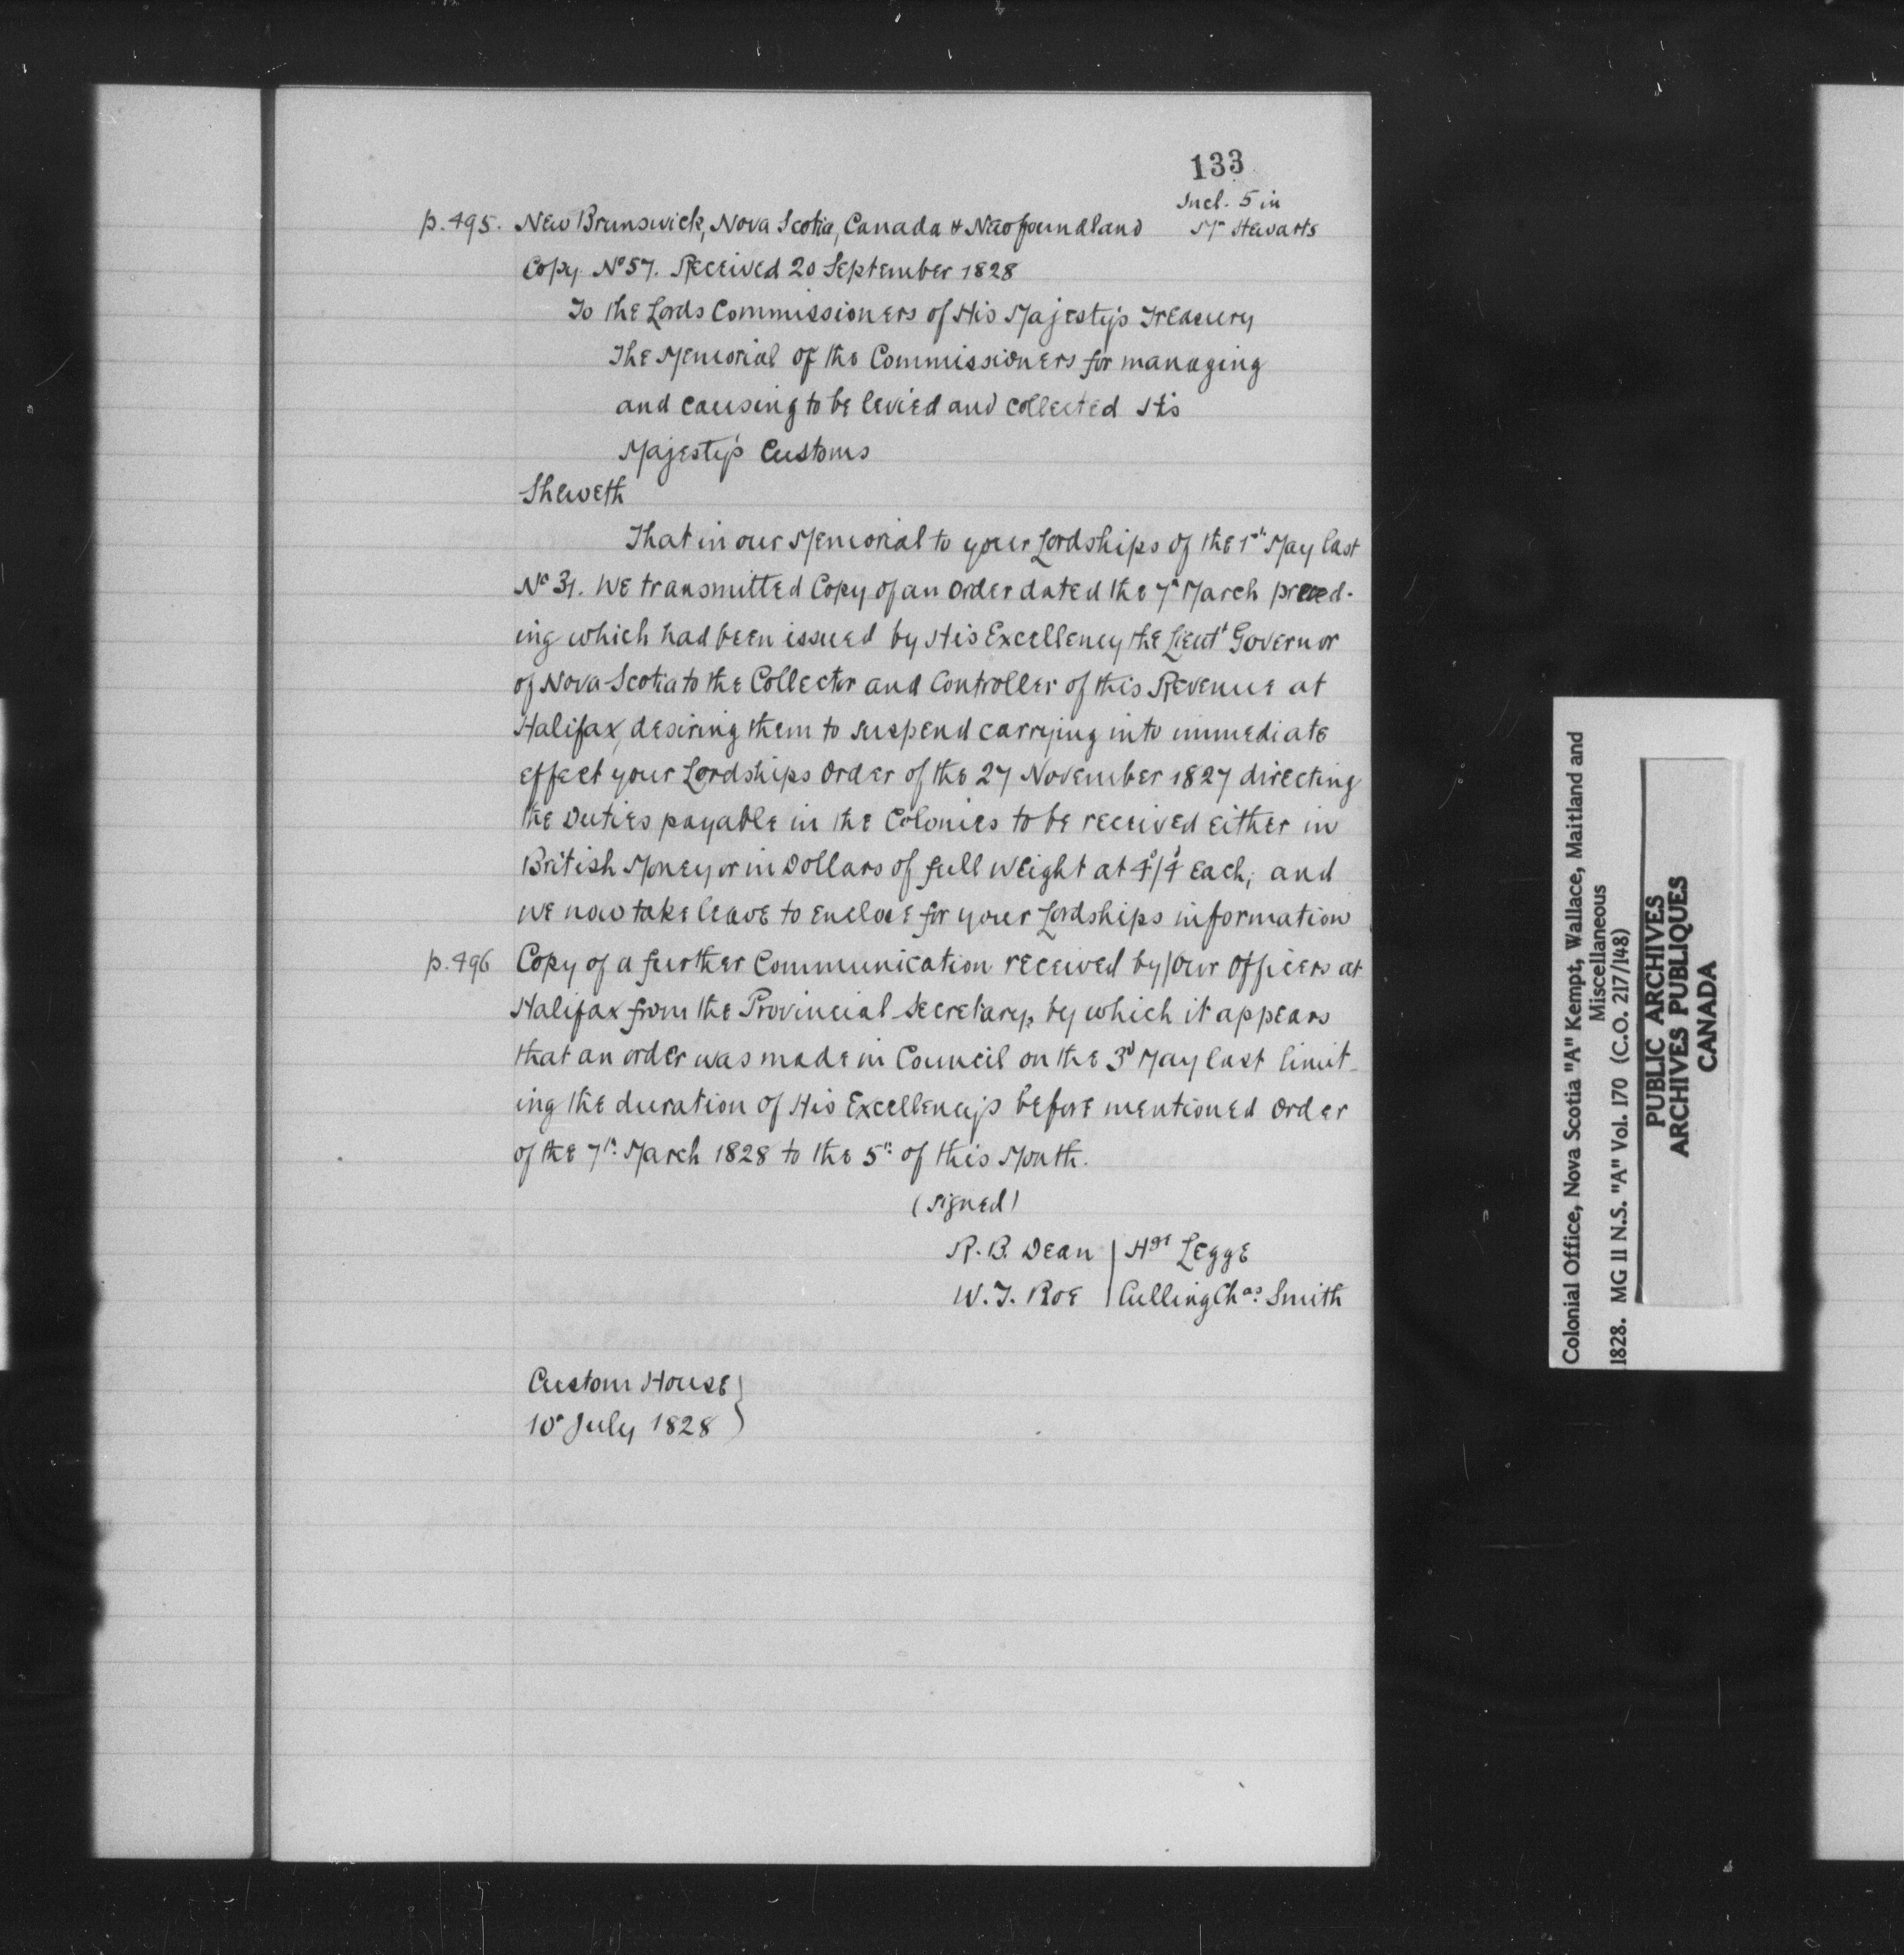 133
Incl. 5 in
Mr Stewarts
p. 495. New Brunswick, Nova Scotia, Canada & Newfoundland
Copy. No 57. Received 20 September 1828
To the Lords Commissioners of His Majesty's Treasury
The Memorial of the Commissioners for managing
and causing to be levied and collected His
Majesty's Customs
Sheweth
That in our Memorial to your Lordships of the 1st May last
No 31. We transmitted Copy of an Order dated the 7th March preced-
ing which had been issued by His Excellency the Lieut Governor
of Nova Scotia to the Collector and Controller of this Revenue at
Halifax, desiring them to suspend carrying into immediate
effect your Lordships Order of the 27 November 1827 directing
the Duties payable in the Colonies to be received either in
British Money or in Dollars of full weight at 4s/4d each; and
we now take leave to enclose for your Lordships information
p. 496 Copy of a further Communication received by/our Officers at
Halifax from the Provincial Secretary, by which it appears
that an order was made in Council on the 3d May last limit-
ing the duration of His Excellency's before mentioned Order
of the 7th March 1828 to the 5th of this Month.
(signed)
R. B. Dean | Hge Legge
W. T. Roe | Culling Chas Smith
Custom House }
10 July 1828
Colonial Office, Nova Scotia "A" Kempt, Wallace, Maitland and
Miscellaneous
1828. MG 11 N.S. "A" Vol. 170 (C.O. 217/148)
PUBLIC ARCHIVES
ARCHIVES PUBLIQUES
CANADA